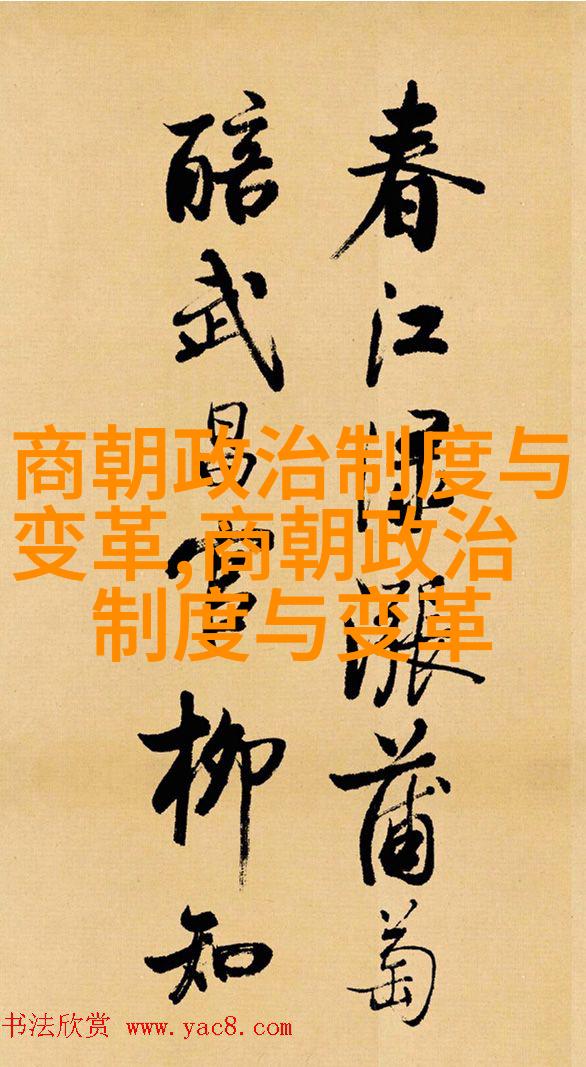 春江淥漲蒲萄
醅武昌官柳知
商朝政治制度与
变革,商朝政治
制度与变革
书法欣赏 www.yac8.com